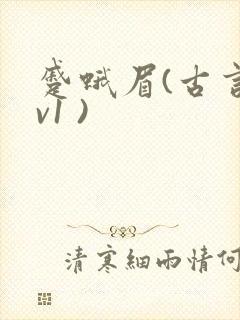 蹙蛾眉(古言
v1)
清寒細雨情何